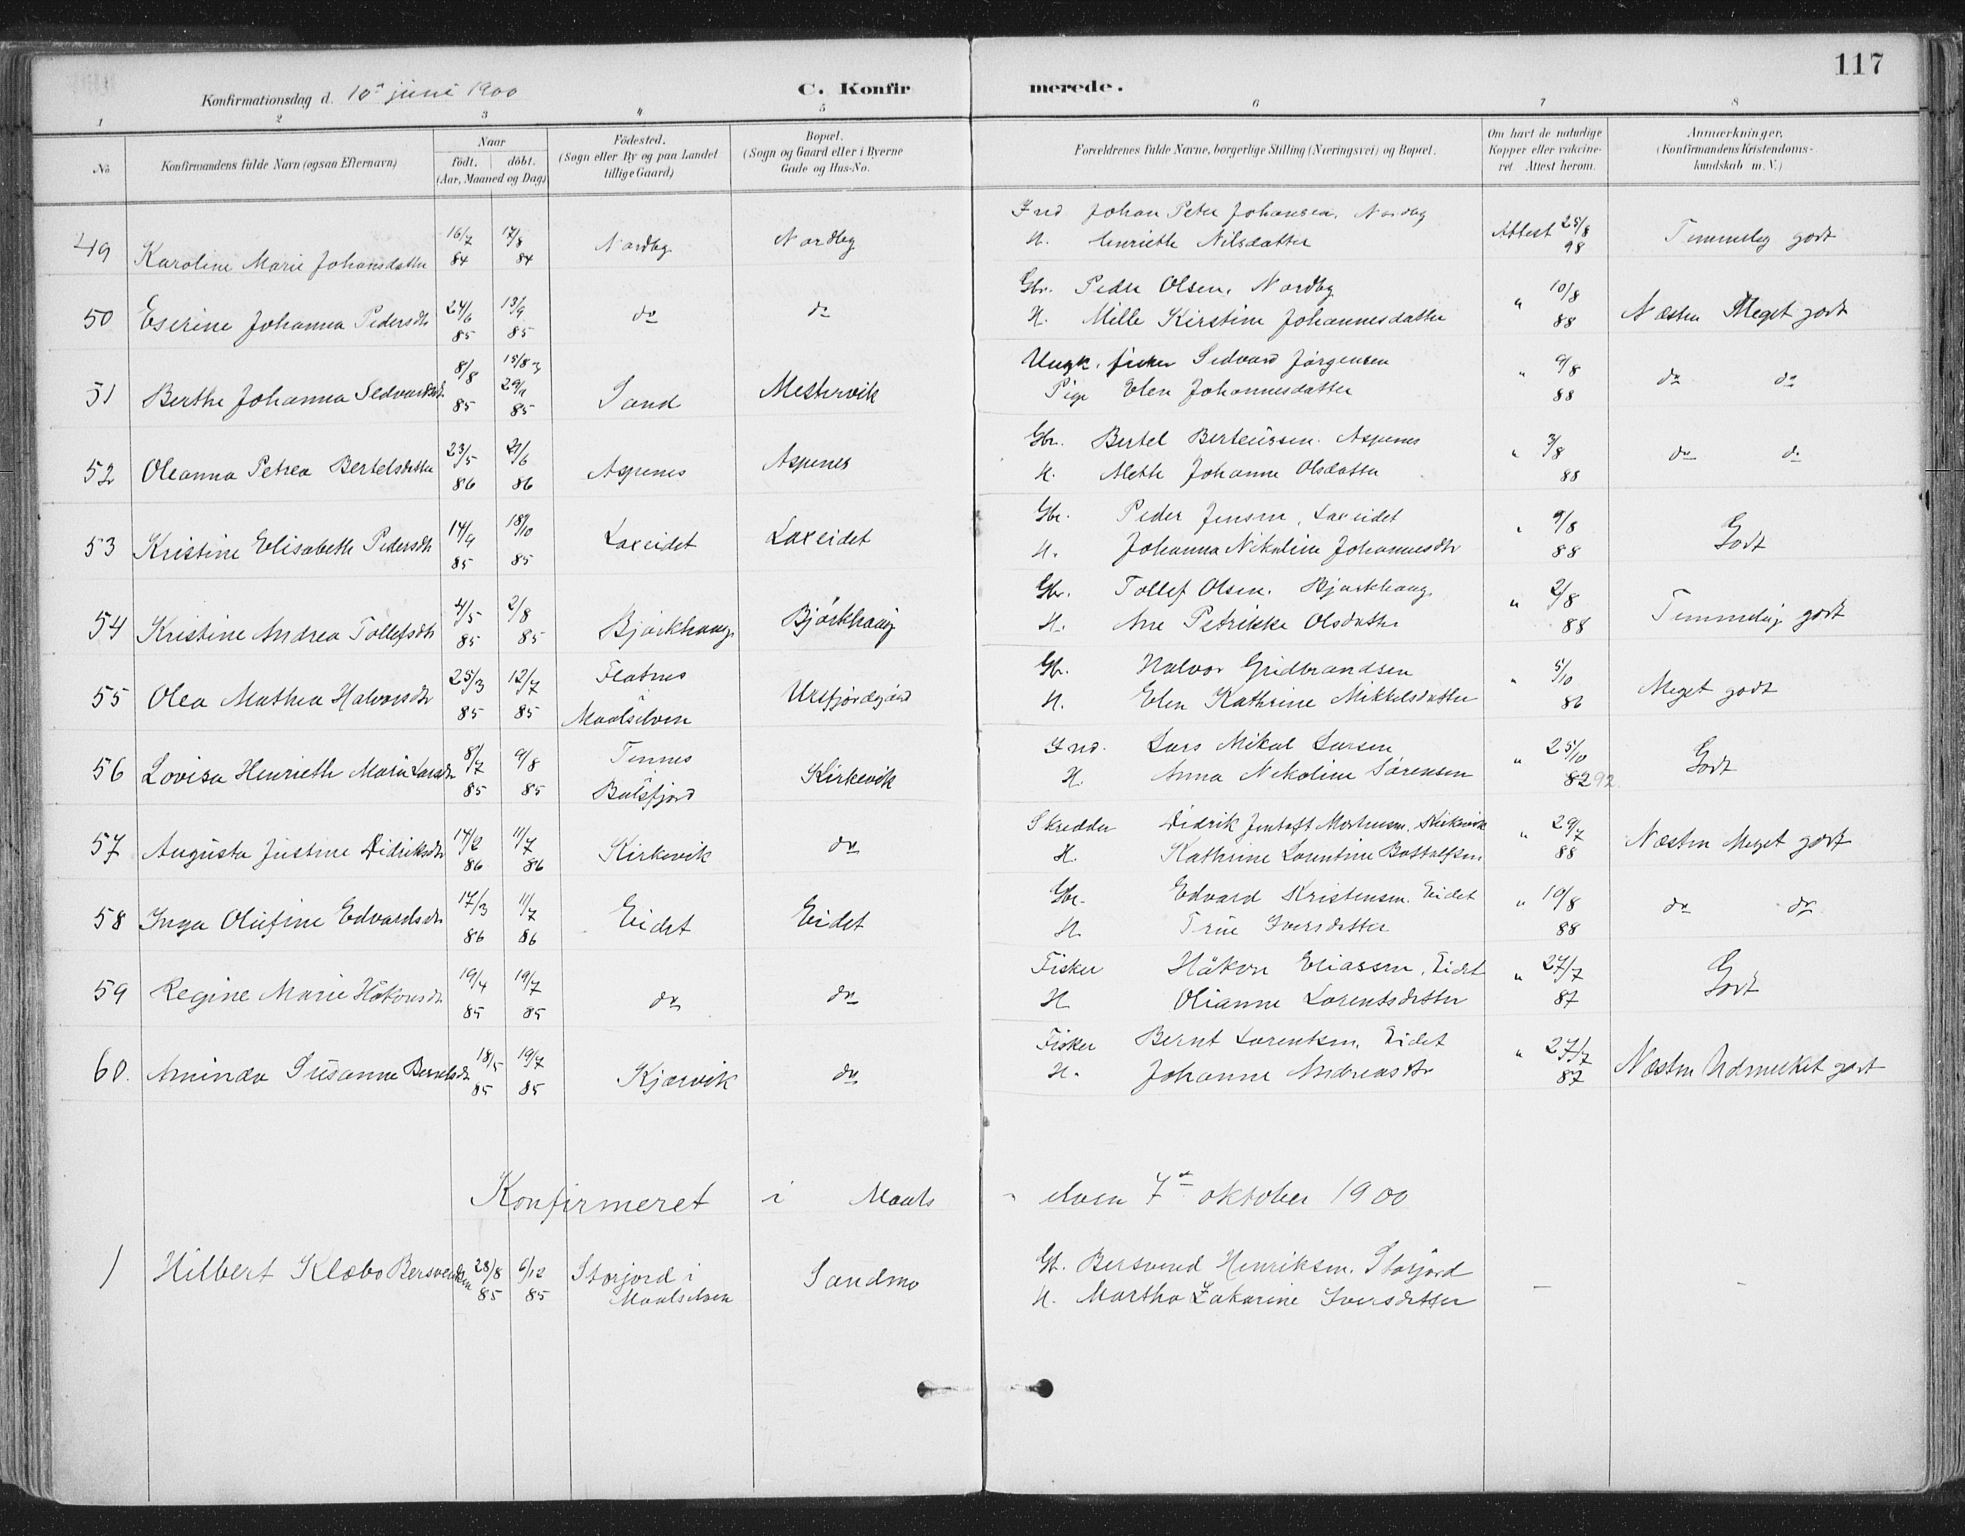 117
Konfirmationsdag d. 10de juni 1900 C. Konfirmerede.
1 2 3 4 5 6 7 8
No. Konfirmandens fulde Navn (ogsaa Efternavn) Naar født. døbt. (Aar, Maaned og Dag) Fødested. (Sogn eller By og paa Landet tillige Gaard) Bopæl. (Sogn og Gaard eller i Byerne Gade og Hus-No. Forældrenes fulde Navne, borgerlige Stilling (Næringsvei) og Bopæl. Om havt de naturlige Kopper eller vaccineret. Attest herom. Anmærkninger. (Konfirmandens Kristendomskundskab m. V.)
49 Karoline Marie Johansdatter 16/7 84 17/8 84 Nordby Nordby Ind Johan Peter Johansen, Nordby
H. Henriette Nilsdatter Attest 25/8 98 Temmelig godt
50 Eserine Johanna Pedersdtr 24/6 85 13/9 85 do do Gbr. Peder Olsen, Nordby
H. Mille Kirstine Johannesdatter " 10/8 88 Næsten Meget godt
51 Berthe Johanna Sedvardsdtr 8/8 85 85 Sand Mestervik Ungk. fisker Sedvard Jørgensen
Pige Elen Johannesdatter " 9/8 88 do do
52 Oleanna Petrea Bertelsdatter 23/5 86 21/6 86 Aspenes Aspenes Gbr. Bertel Berteussen. Aspenes
H. Mette Johanne Olsdatter " 3/8 88 do do
53 Kristine Elisabeth Pedersdtr 14/9 85 18/10 85 Laxeidet Laxeidet Gbr. Peder Jensen, Laxeidet
H. Johanna Nikoline Johannesdtr " 9/8 88 Godt
54 Kristine Andrea Tollefsdtr 4/5 85 2/8 85 Bjørkhaug Bjørkhaug Gbr. Tollef Olsen. Bjørkhaug
H. Ane Petrikke Olsdatter " 2/8 88 Temmelig godt
55 Olea Mathea Halvorsdtr 25/3 85 12/7 85 Flatnes i Maalselven Ursfjordgård Gbr. Halvor Gudbrandsen
H. Elen Kathrine Mikkelsdatter " 5/10 86 Meget godt
56 Lovisa Henriette Marie Larsdtr 8/7 85 9/8 85 Tennes Balsfjord Kirkevik Ind. Lars Mikal Larsen
H. Anna Nikoline Sørensen " 25/10 82 92 Godt
57 Augusta Justine Didriksdtr 14/2 86 11/7 86 Kirkevik do Skredder Didrik Jentoft Mortensen, Kirkevik
H. Kathrine Lorentine Bottolfsen " 29/7 88 Næsten Meget godt
58 Inga Olufine Edvardsdtr 17/3 86 11/7 86 Eidet Eidet Gbr. Edvard Kristensen, Eidet
H. Trine Iversdatter " 10/8 88 do do
59 Regine Marie Håkonsdtr 19/4 85 19/7 85 do do Fisker Håkon Eliassen, Eidet
H Olianne Lorentsdatter " 27/7 87 Godt
60. Aminda Susanne Berntsdtr 18/5 85 19/7 85 Kjærvik do Fisker Bernt Lorentsen, Eidet
H. Johanne Andreasdtr " 27/7 87 Næsten Udmerket godt
Konfirmeret i Maalselven 7de oktober 1900
1 Hilbert Klæbo Bersvendsen 28/8 85 6/12 85 Storjord i Maalselven Sandmo Gb. Bersvend Henriksen, Storjord
H. Martha Zakarine Iversdatter — —